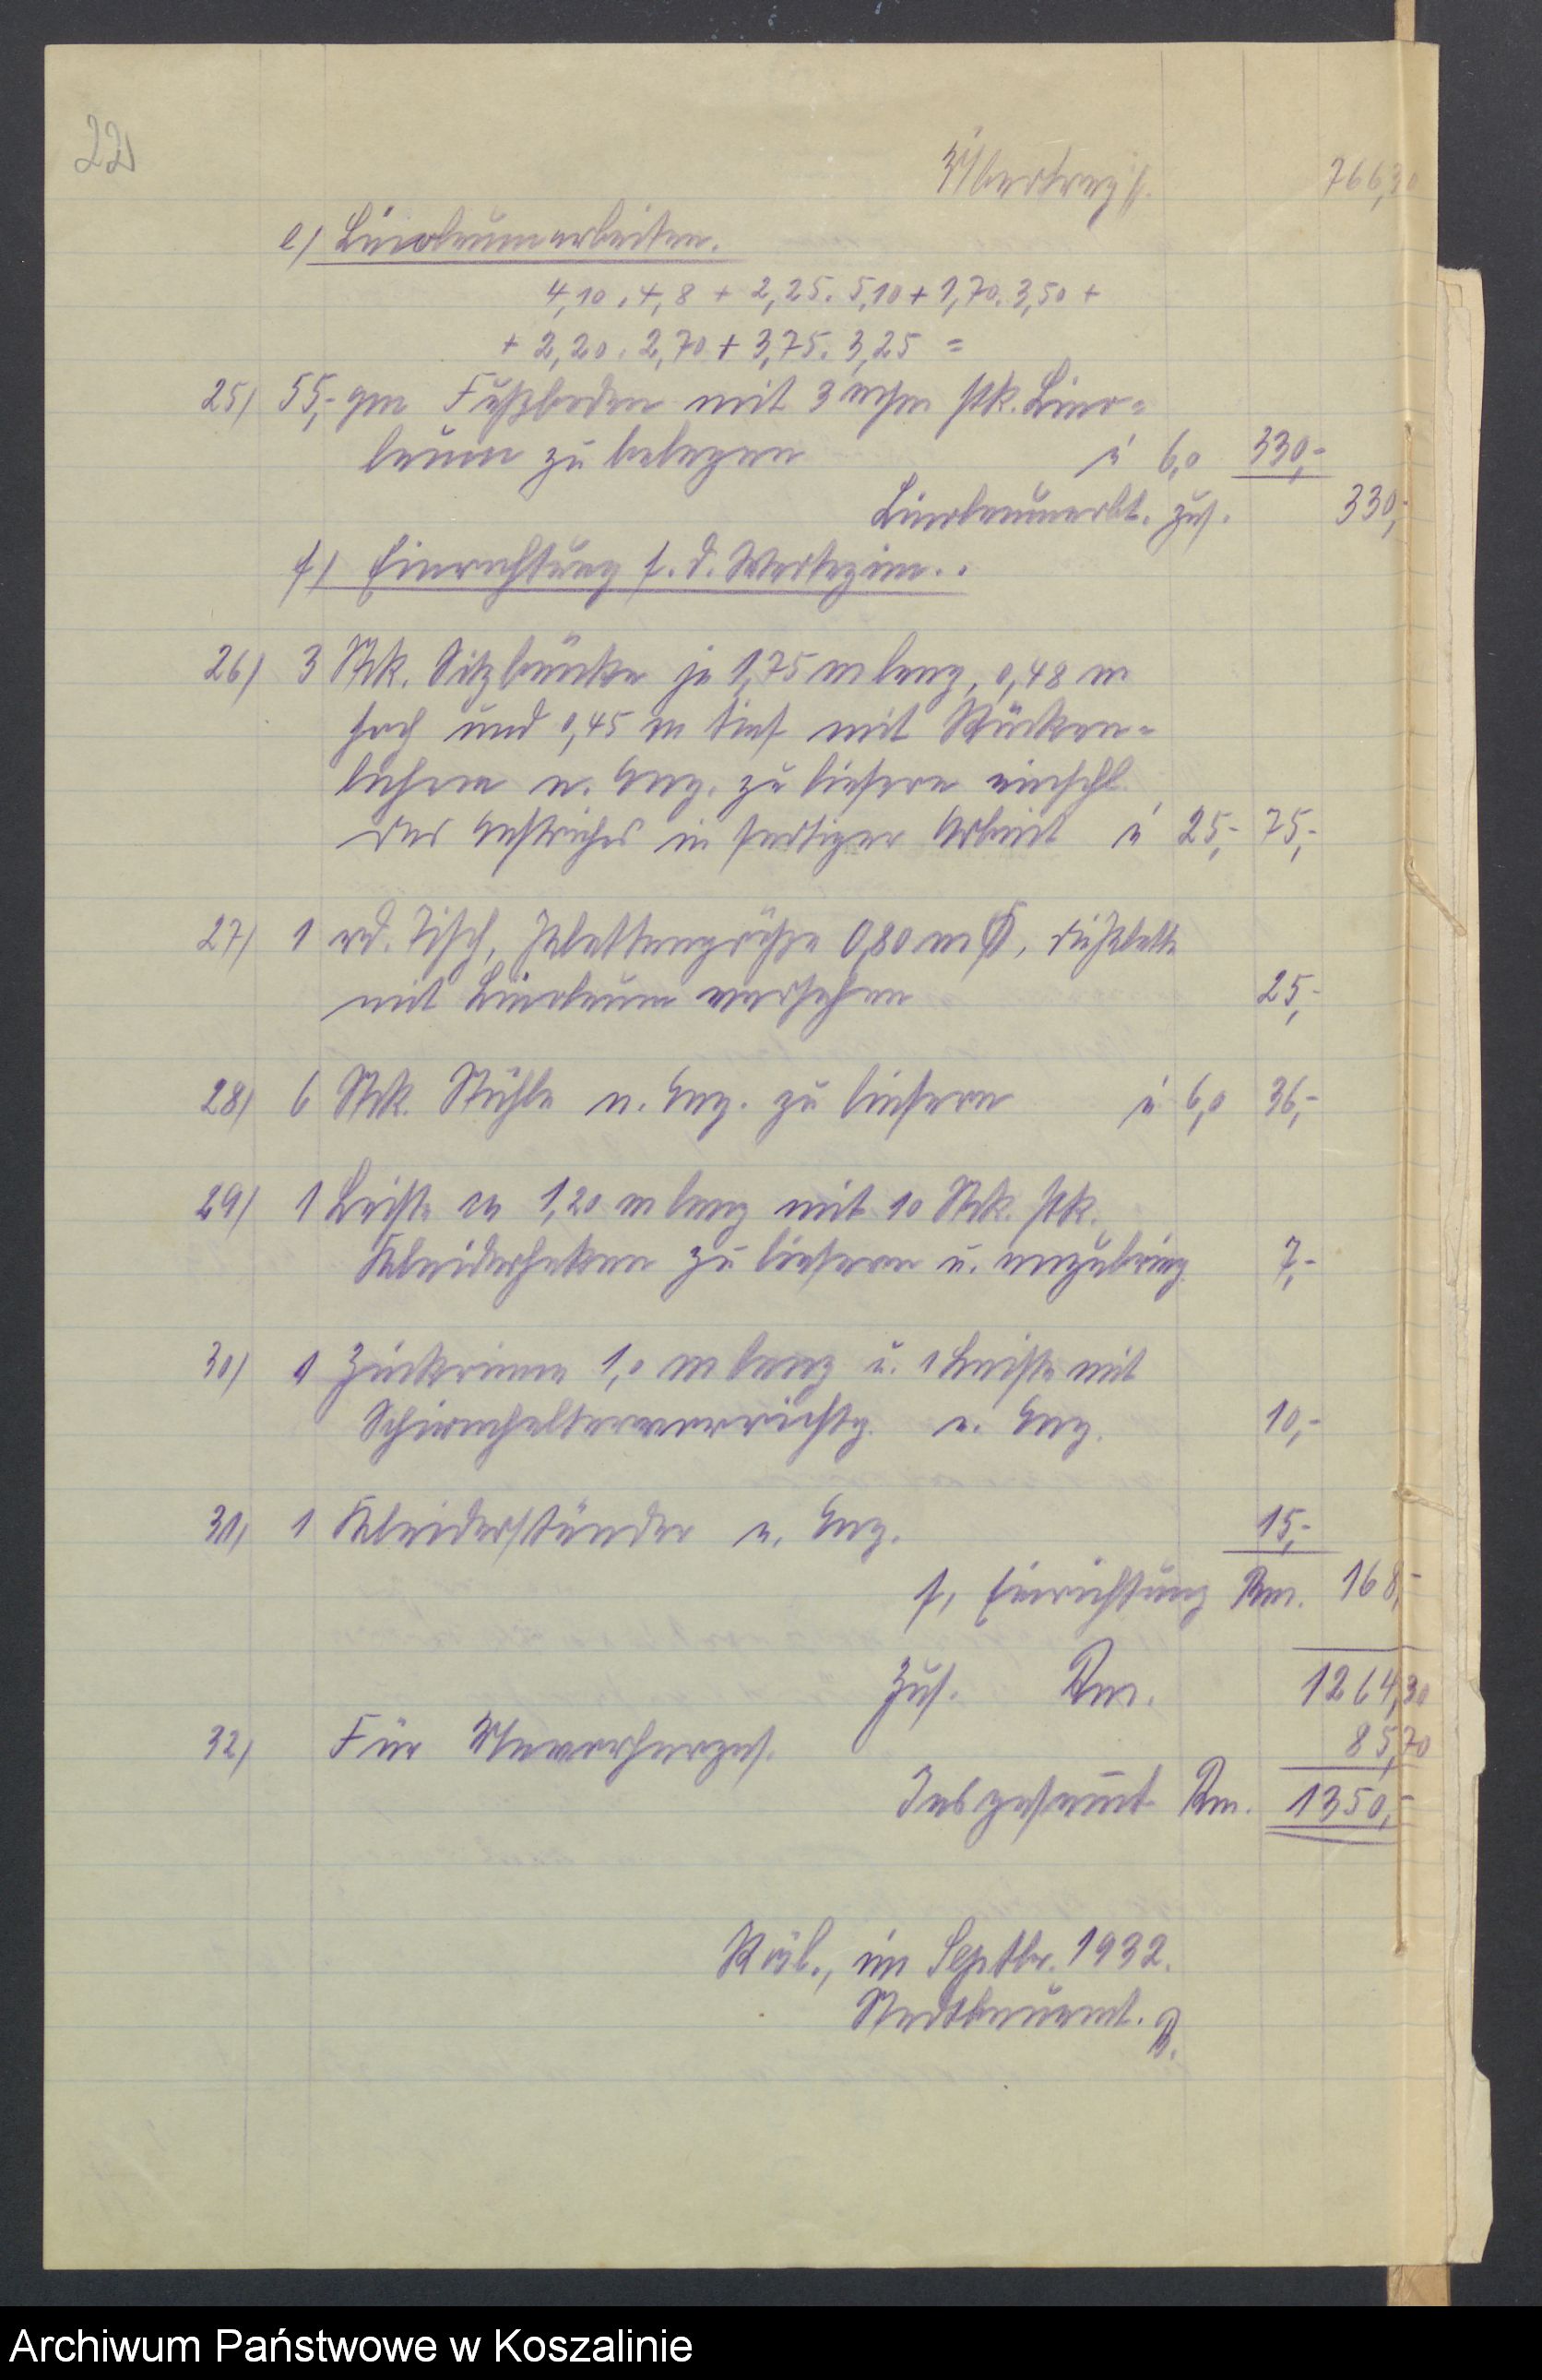 22
Übertrag
766,30
e) Linoleumarbeiten.
4,10 . 4,8 + 2,25 . 5,10 + 1,70 . 3,50 +
+ 2,20 . 2,70 + 3,75 . 3,25 =
25) 55,- qm Fußboden mit 3 m/m stk. Lino-
leum zu belegen à 6,0 330,-
Linoleumarbt. zus. 330,-
f) Einrichtung f. d. Wartezim..
26) 3 Stk. Sitzbänke je 1,75 m lang, 0,48 m
hoch und 0,45 m tief mit Rücken-
lehne n. Ang. zu liefern einschl.
des Anstriches in fertiger Arbeit à 25,- 75,-
27) 1 rd. Tisch, Plattengröße 0,80 m Ø, die Platte
mit Linoleum versehen 25,-
28) 6 Stk. Stühle n. Ang. zu liefern à 6,0 36,-
29) 1 Leiste ca 1,20 m lang mit 10 Stk. stk.
Kleiderhaken zu liefern u. anzubring. 7,-
30) 1 Zinkrinne 1,0 m lang u. 1 Leiste mit
Schirmhaltervorrichtg. n. Ang. 10,-
31) 1 Kleiderständer n. Ang. 15,-
f, Einrichtung Rm. 168,-
Zus. Rm. 1264,30
32) Für Unvorherges. 85,70
Insgesamt Rm. 1350,-
Kösl., im Septbr. 1932.
Stadtbauamt.
Archiwum Państwowe w Koszalinie